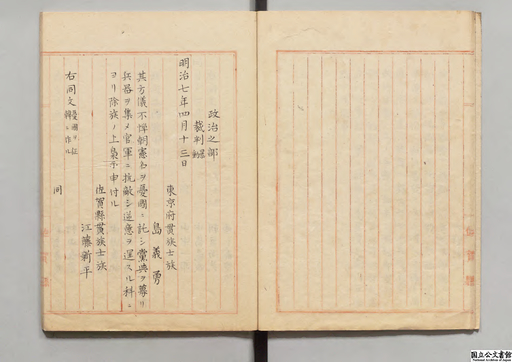 政治之部
裁判
明治七年四月十三日
東京府貫族士族
島義勇
其方儀不憚朝憲名ヲ憂國ニ託シ黨與ヲ募リ
兵器ヲ集メ官軍ニ抗敵シ逆意ヲ逞スル科ニ
ヨリ除族ノ上梟示申付ル
佐賀縣貫族士族
江藤新平
右同文憂國ヲ征韓ニ作ル
同
国立公文書館
National Archives of Japan